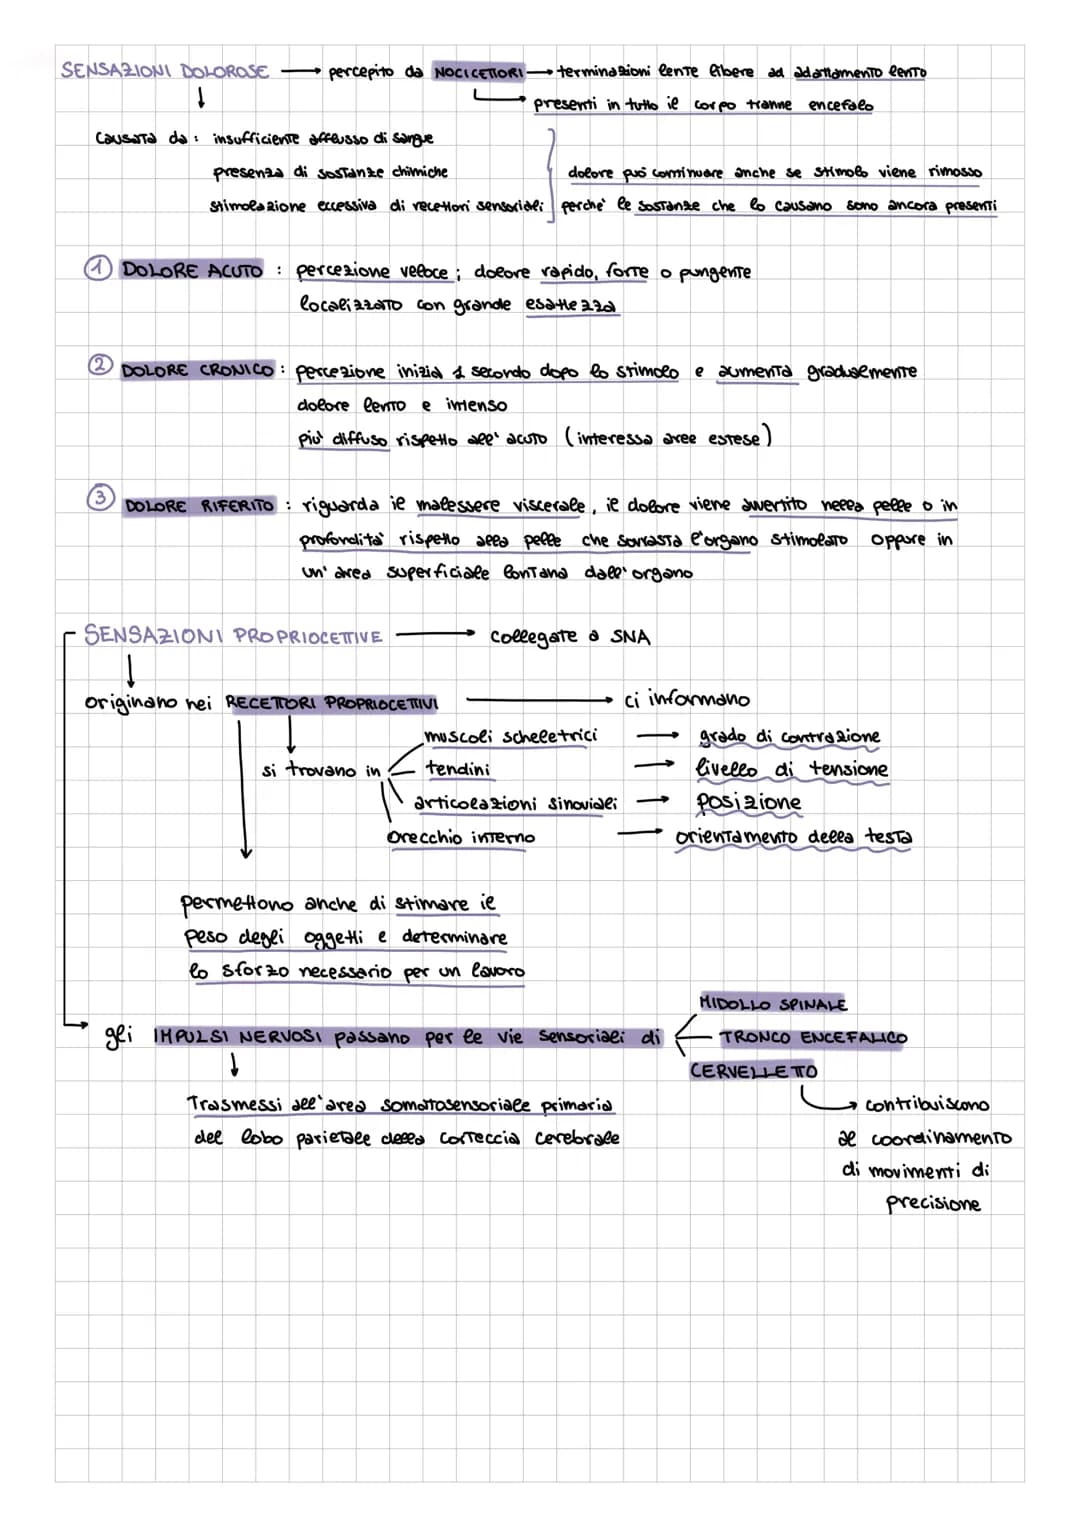 SENSAZIONI DOLOROSE → percepito da NOCICETTORI → terminazioni lente libere ad adattamento lento
presenti in tutto il corpo tranne encefalo
causata da: insufficiente afflusso di sangue
presenza di sostanze chimiche
stimolazione eccessiva di recettori sensoriali
dolore può continuare anche se stimolo viene rimosso
perche' le sostanze che lo causano sono ancora presenti
① DOLORE ACUTO : percezione veloce; dolore rapido, forte o pungente
localizzato con grande esattezza
② DOLORE CRONICO: percezione inizia 1 secondo dopo lo stimolo e aumenta gradualmente
dolore lento e intenso
piu' diffuso rispetto all' acuto (interessa aree estese)
③ DOLORE RIFERITO : riguarda il malessere viscerale, il dolore viene avvertito nella pelle o in
profondita' rispetto alla pelle che sovrasta l'organo stimolato oppure in
un' area superficiale lontana dall' organo
SENSAZIONI PROPRIOCETTIVE → collegate a SNA
originano nei RECETTORI PROPRIOCETTIVI → ci informano
muscoli scheletrici → grado di contrazione
si trovano in tendini → livello di tensione
articolazioni sinoviali → posizione
orecchio interno → orientamento della testa
permettono anche di stimare il
peso degli oggetti e determinare
lo sforzo necessario per un lavoro
MIDOLLO SPINALE
gli IMPULSI NERVOSI passano per le vie sensoriali di TRONCO ENCEFALICO
CERVELLETTO
Trasmessi all'area somatosensoriale primaria → contribuiscono
del lobo parietale della corteccia cerebrale al coordinamento
di movimenti di
precisione